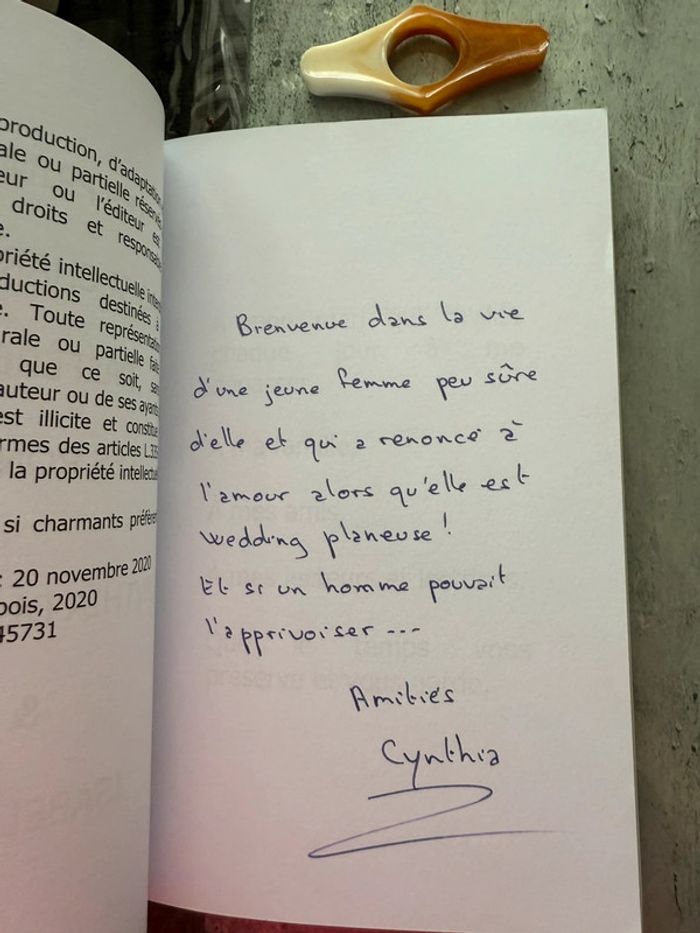 production, d'adaptation
ale ou partielle réservés
eur ou l'éditeur est
droits et responsable
e.
priété intellectuelle
ductions destinées à
e. Toute représentation
rale ou partielle faite
que ce soit, sans
auteur ou de ses ayants
est illicite et constitue
rmes des articles L.335
la propriété intellectuelle
si charmants préfèrent
: 20 novembre 2020
bois, 2020
45731
Bienvenue dans la vie
d'une jeune femme peu sûre
d'elle et qui a renoncé à
l'amour alors qu'elle est
wedding planeuse !
Et si un homme pouvait
l'apprivoiser ---
Amitiés
Cynthia